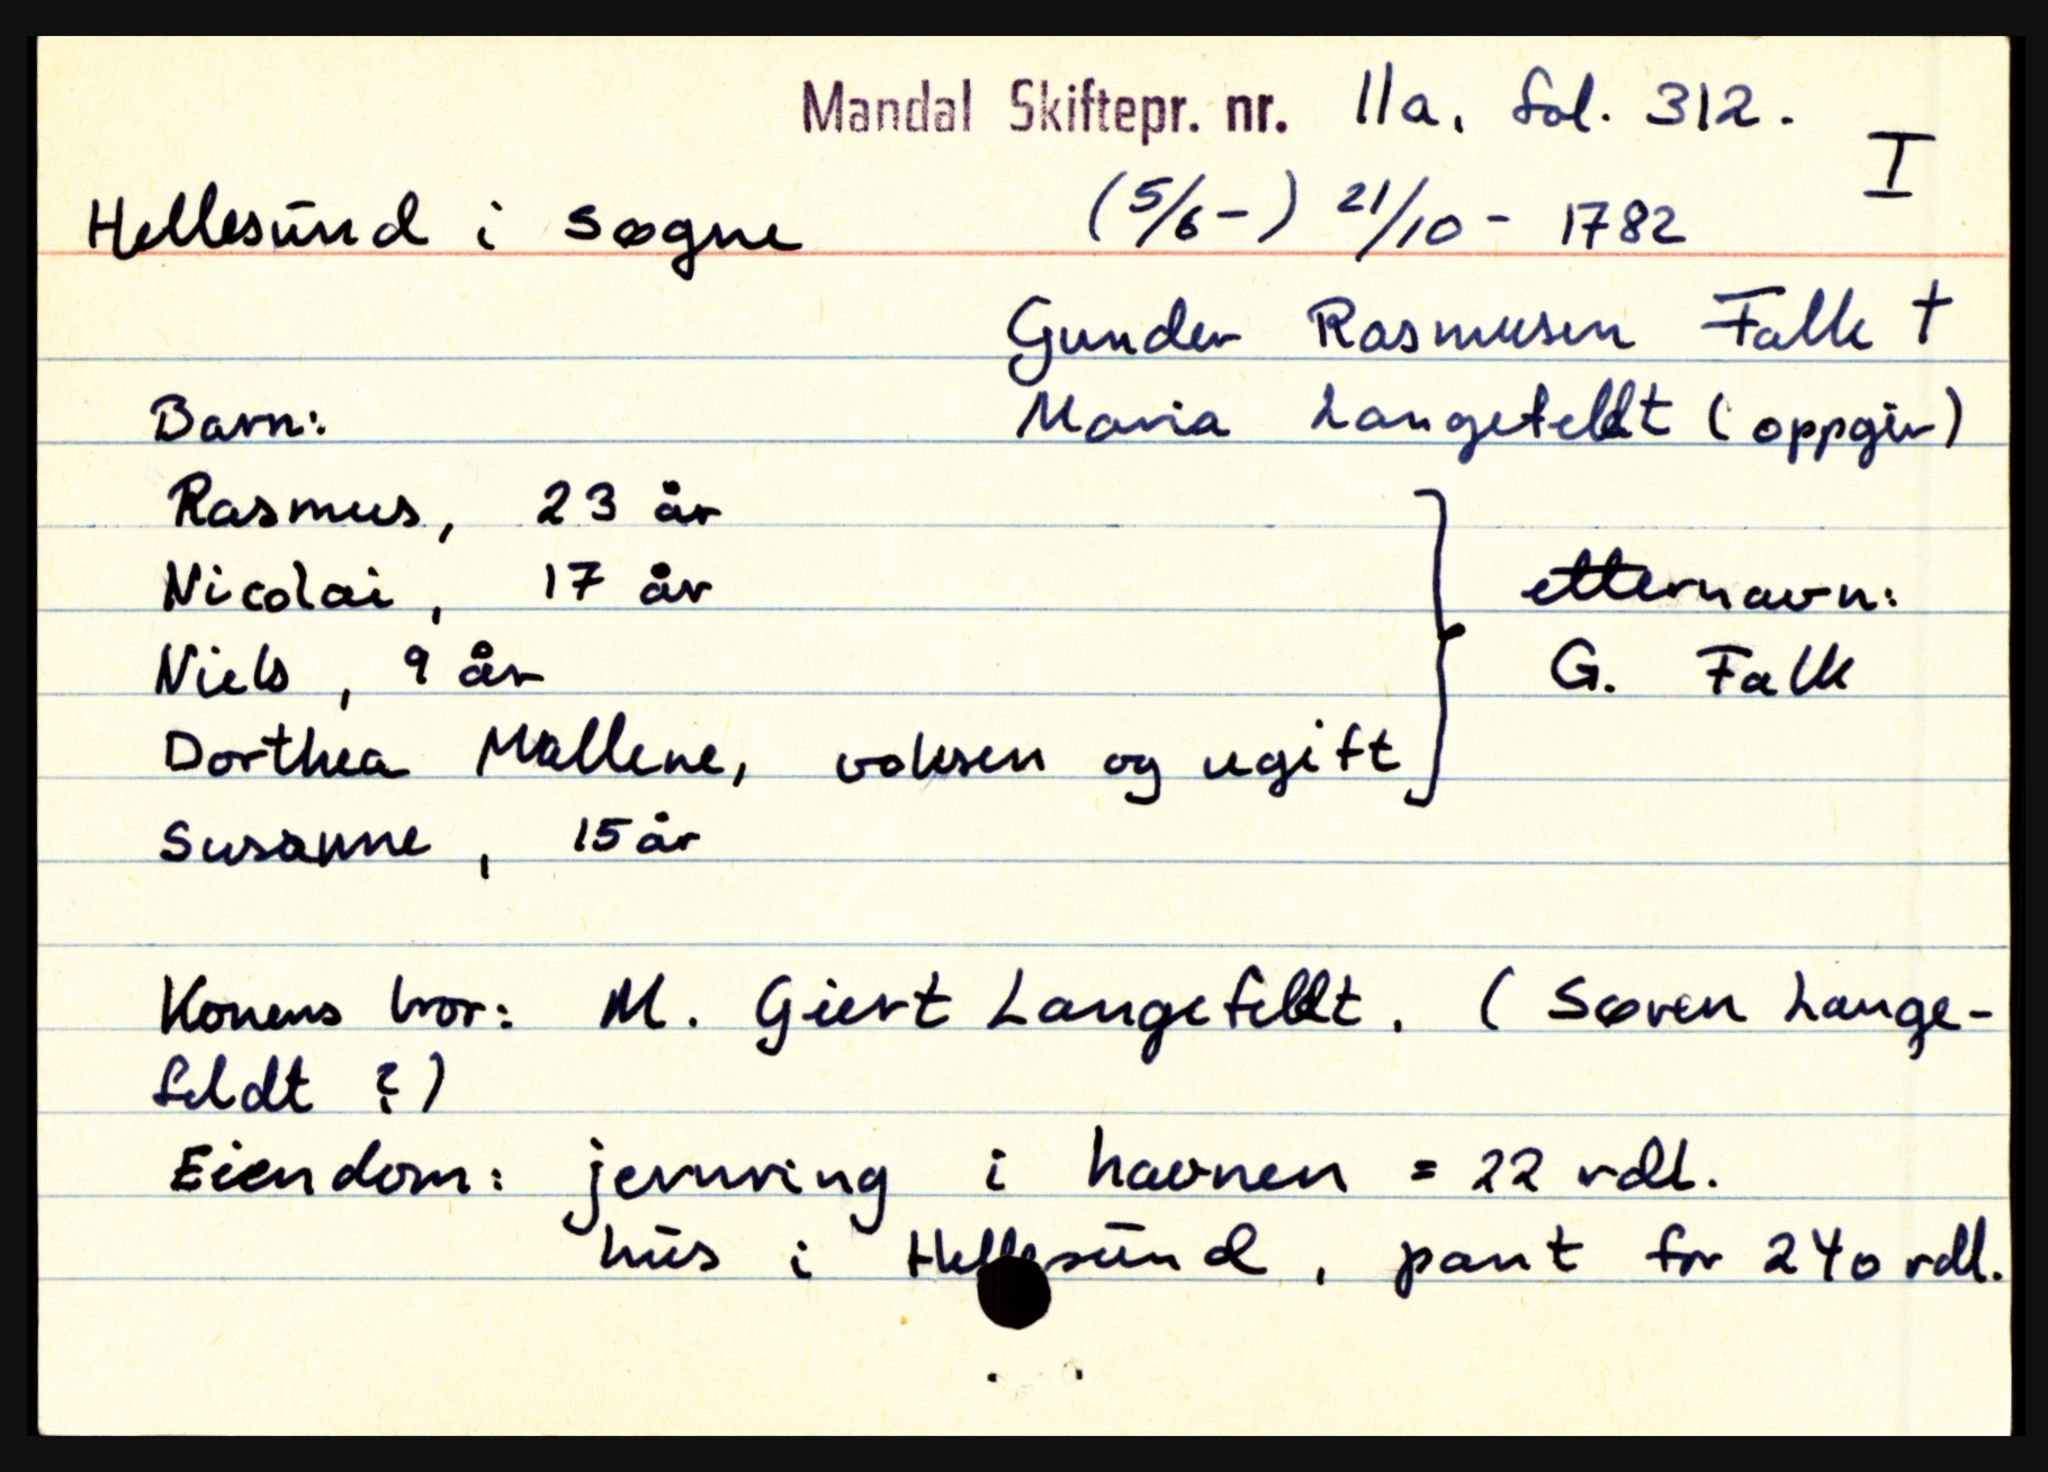 Mandal Skiftepr. nr. 11a, fol. 312.
I
Hellesund i Søgne (5/6-) 21/10 - 1782
Gunder Rasmusen Falk †
Barn: Maria Langefeldt (oppgir)
Rasmus, 23 år
Nicolai, 17 år etternavn:
Niels, 9 år G. Falk
Dorthea Mallene, voksen og ugift
Susanne, 15 år
Konens bror: M. Giert Langefeldt. (Søren Lange-
feldt ?)
Eiendom: jernring i havnen = 22 rdl.
hus i Hellesund, pant for 240 rdl.